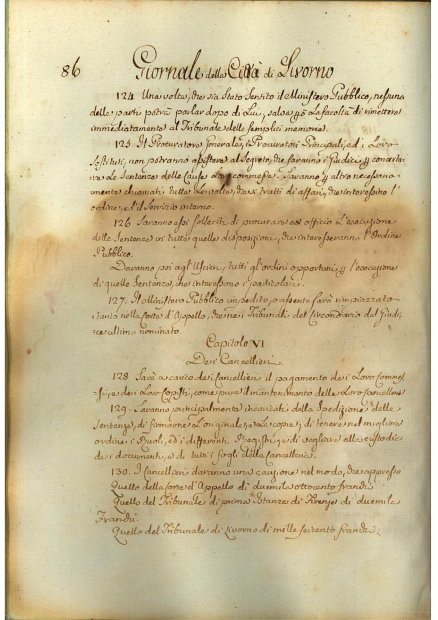 86 Giornale della Città di Livorno
124. Una volta, che sia stato sentito il Ministero Pubblico, nessuna
delle parti potrà parlar dopo di Lui, salva la facoltà di rimettere
immediatamente al Tribunale delle semplici memorie.
125. Il Procuratore Generale, i Procuratori Principali, ed i Loro
Sostituti, non potranno assistere al Segreto, che faranno i Giudici
Le Sentenze delle Cause Loro commesse. Saranno altro necessaria-
mente chiamati tutte Le volte, che si tratti di affari, che interessino l'
ordine, ed il Servizio interno.
126. Saranno essi solleciti di procurare ex officio L'esecuzione
delle Sentenze in tutte quelle disposizioni, che interesseranno l'Ordine
Pubblico.
Daranno poi agl'Uscieri, tutti gl'ordini opportuni l'esecuzione
di quelle Sentenze, che interessino i particolari.
127. Il Ministero Pubblico impedito, o assente sarà rimpiazzato
tanto nella Corte d'Appello, che nei Tribunali del Circondario dal Giudi-
ce ultimo nominato.
Capitolo VI
Dei Cancellieri
128. Sarà a carico dei Cancellieri il pagamento dei Loro Commes-
si, e dei Loro Copisti, come pure il mantenimento delle Loro Cancellerie
129. Saranno principalmente incaricati della Spedizione delle
Sentenze, di firmarne L'originale, e Le copie, di tenere nel miglior
ordine i Ruoli, ed i differenti Registri, e di vegliare alla custodia
dei documenti, e di tutti i fogli della Cancelleria.
130. I Cancellieri daranno una cauzione nel modo, che appresso
Quello della Corte d'Appello di duemila ottocento franchi
Quello del Tribunale di prima Istanza di Firenze di duemila
Franchi.
Quello del Tribunale di Livorno di mille seicento franchi.